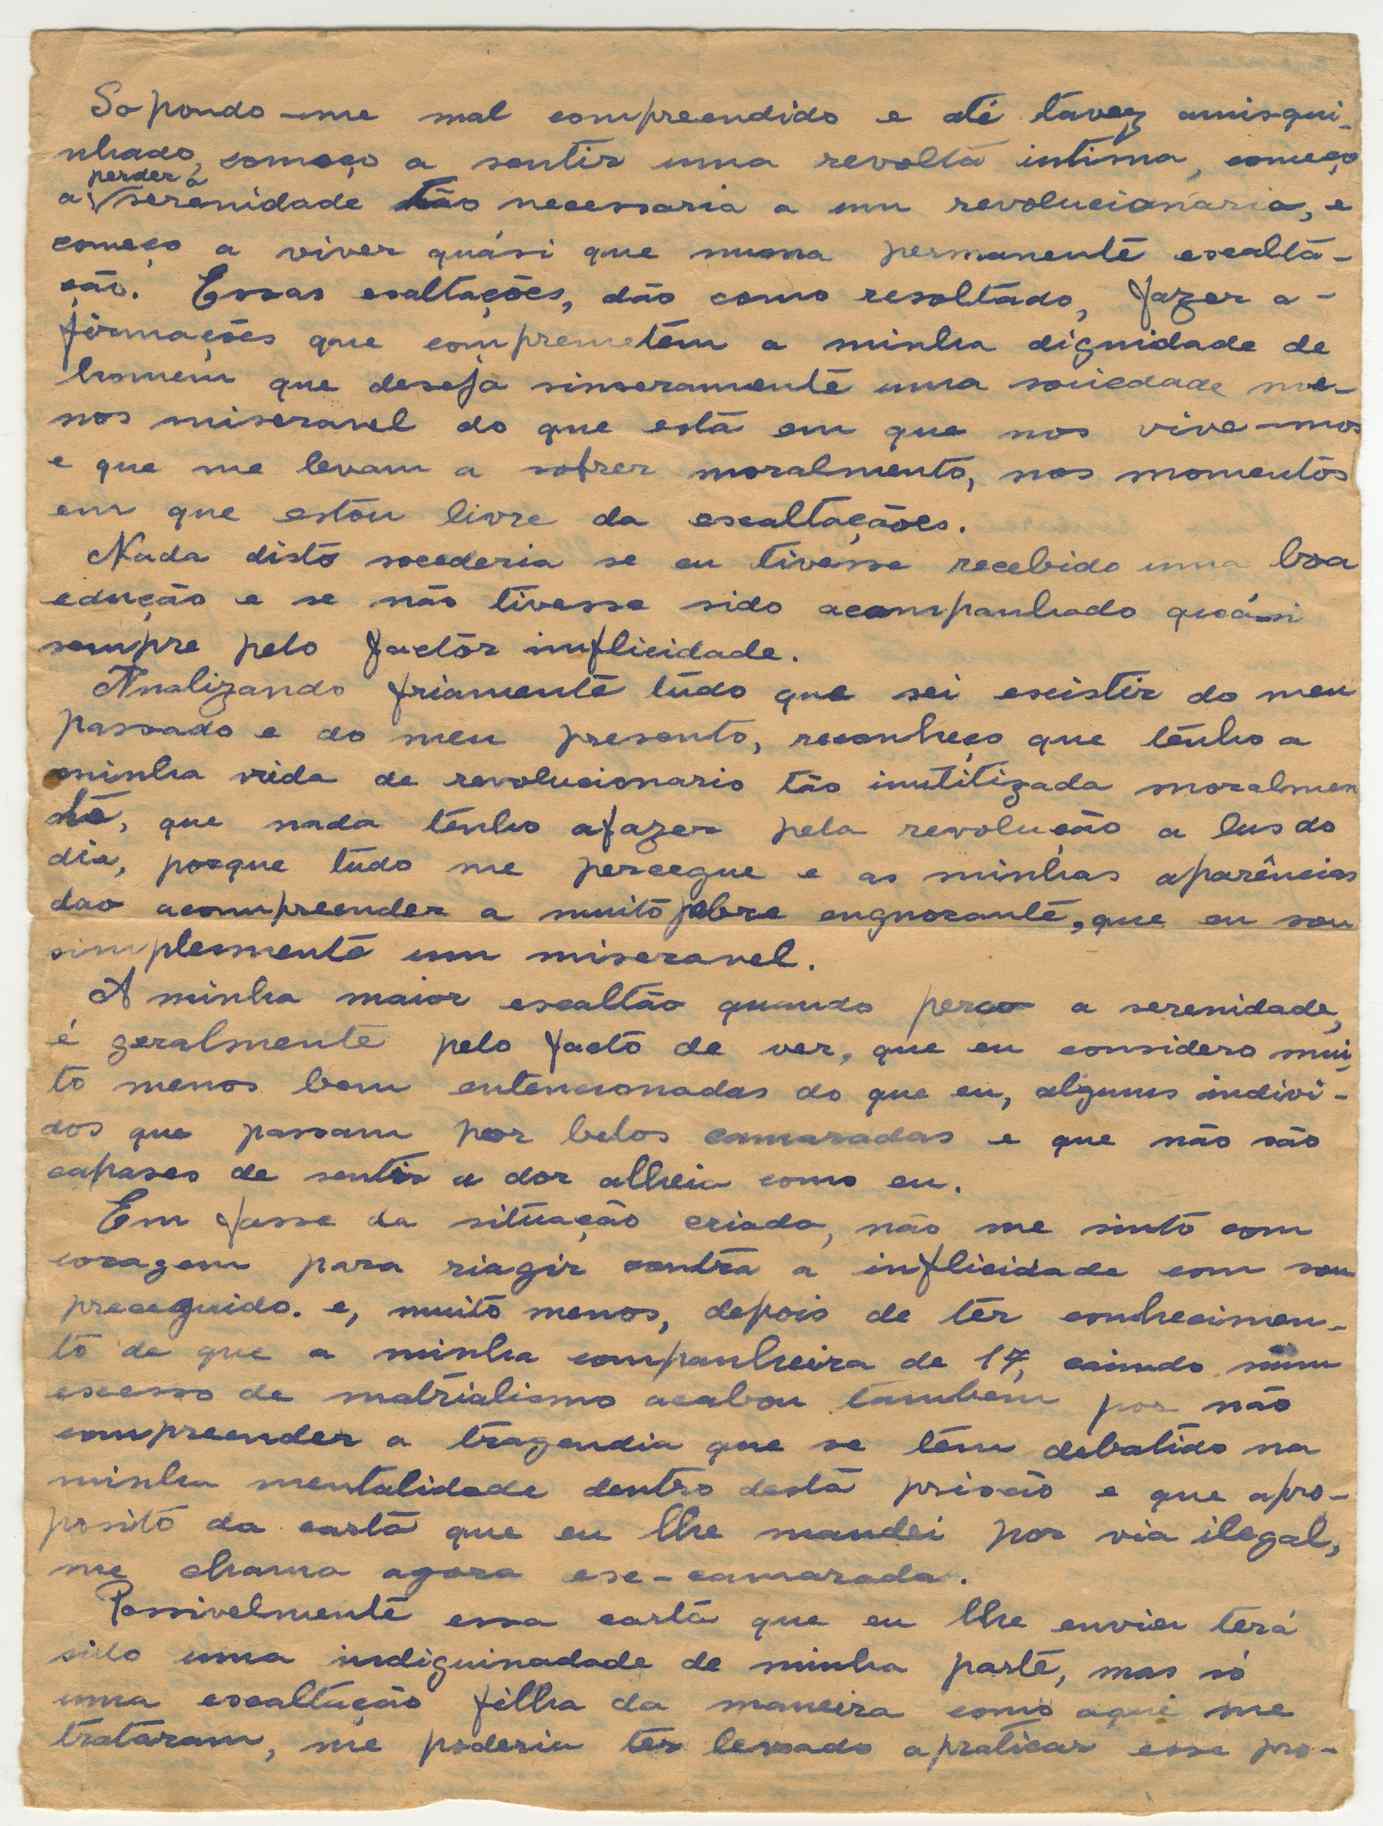 Sopondo-me mal compreendido e até tavez amisqui-
nhado, começo a sentir uma revolta intima, começo
a perder a serenidade tão necessaria a um revolucionário, e
começo a viver quási que numa permanente escalta-
ção. Essas esaltações, dão como resoltado, fazer a-
firmações que comprometem a minha dignidade de
homem que deseja sinseramente uma sociedade me-
nos miseravel do que está em que nos vive-mos
e que me levam a sofrer moralmento, nos momentos
em que estou livre da escaltações.
Nada disto socederia se eu tivesse recebido uma boa
edução e se não tivesse sido acompanhado quási
sempre pelo factor inflicidade.
Analizando friamente tudo que sei escistir do meu
passado e do meu presento, reconheço que tenho a
minha vida de revolucionario tão inutitizada moralmen
te, que nada tenho afazer pela revolução a lus do
dia, porque tudo me percegue e as minhas aparências
dao acompreender a muito pobre engnorante, que eu sou
simplesmente um miseravel.
A minha maior escaltão quando perco a serenidade,
é geralmente pelo facto de ver, que eu considero mui-
to menos bem entencionadas do que eu, alguns indivi-
dos que passam por belos camaradas e que não são
capases de sentir a dor alheia como eu.
Em fasse da situação criada, não me sinto com
coragem para riagir contra a inflicidade com sou
preceguido. e, muito menos, depois de ter conhecimen-
to de que a minha companheira de 17, caindo num
escesso de matrialismo acabou tambem por não
compreender a tragendia que se tem debatido na
minha mentalidade dentro desta prisão e que apro-
posito da carta que eu lhe mandei por via ilegal,
me chama agora ese-camarada.
Possivelmente essa carta que eu lhe enviei terá
sido uma indiguinadade de minha parte, mas só
uma escaltação filha da maneira como aqui me
trataram, me poderia ter levado apraticar esse pro-